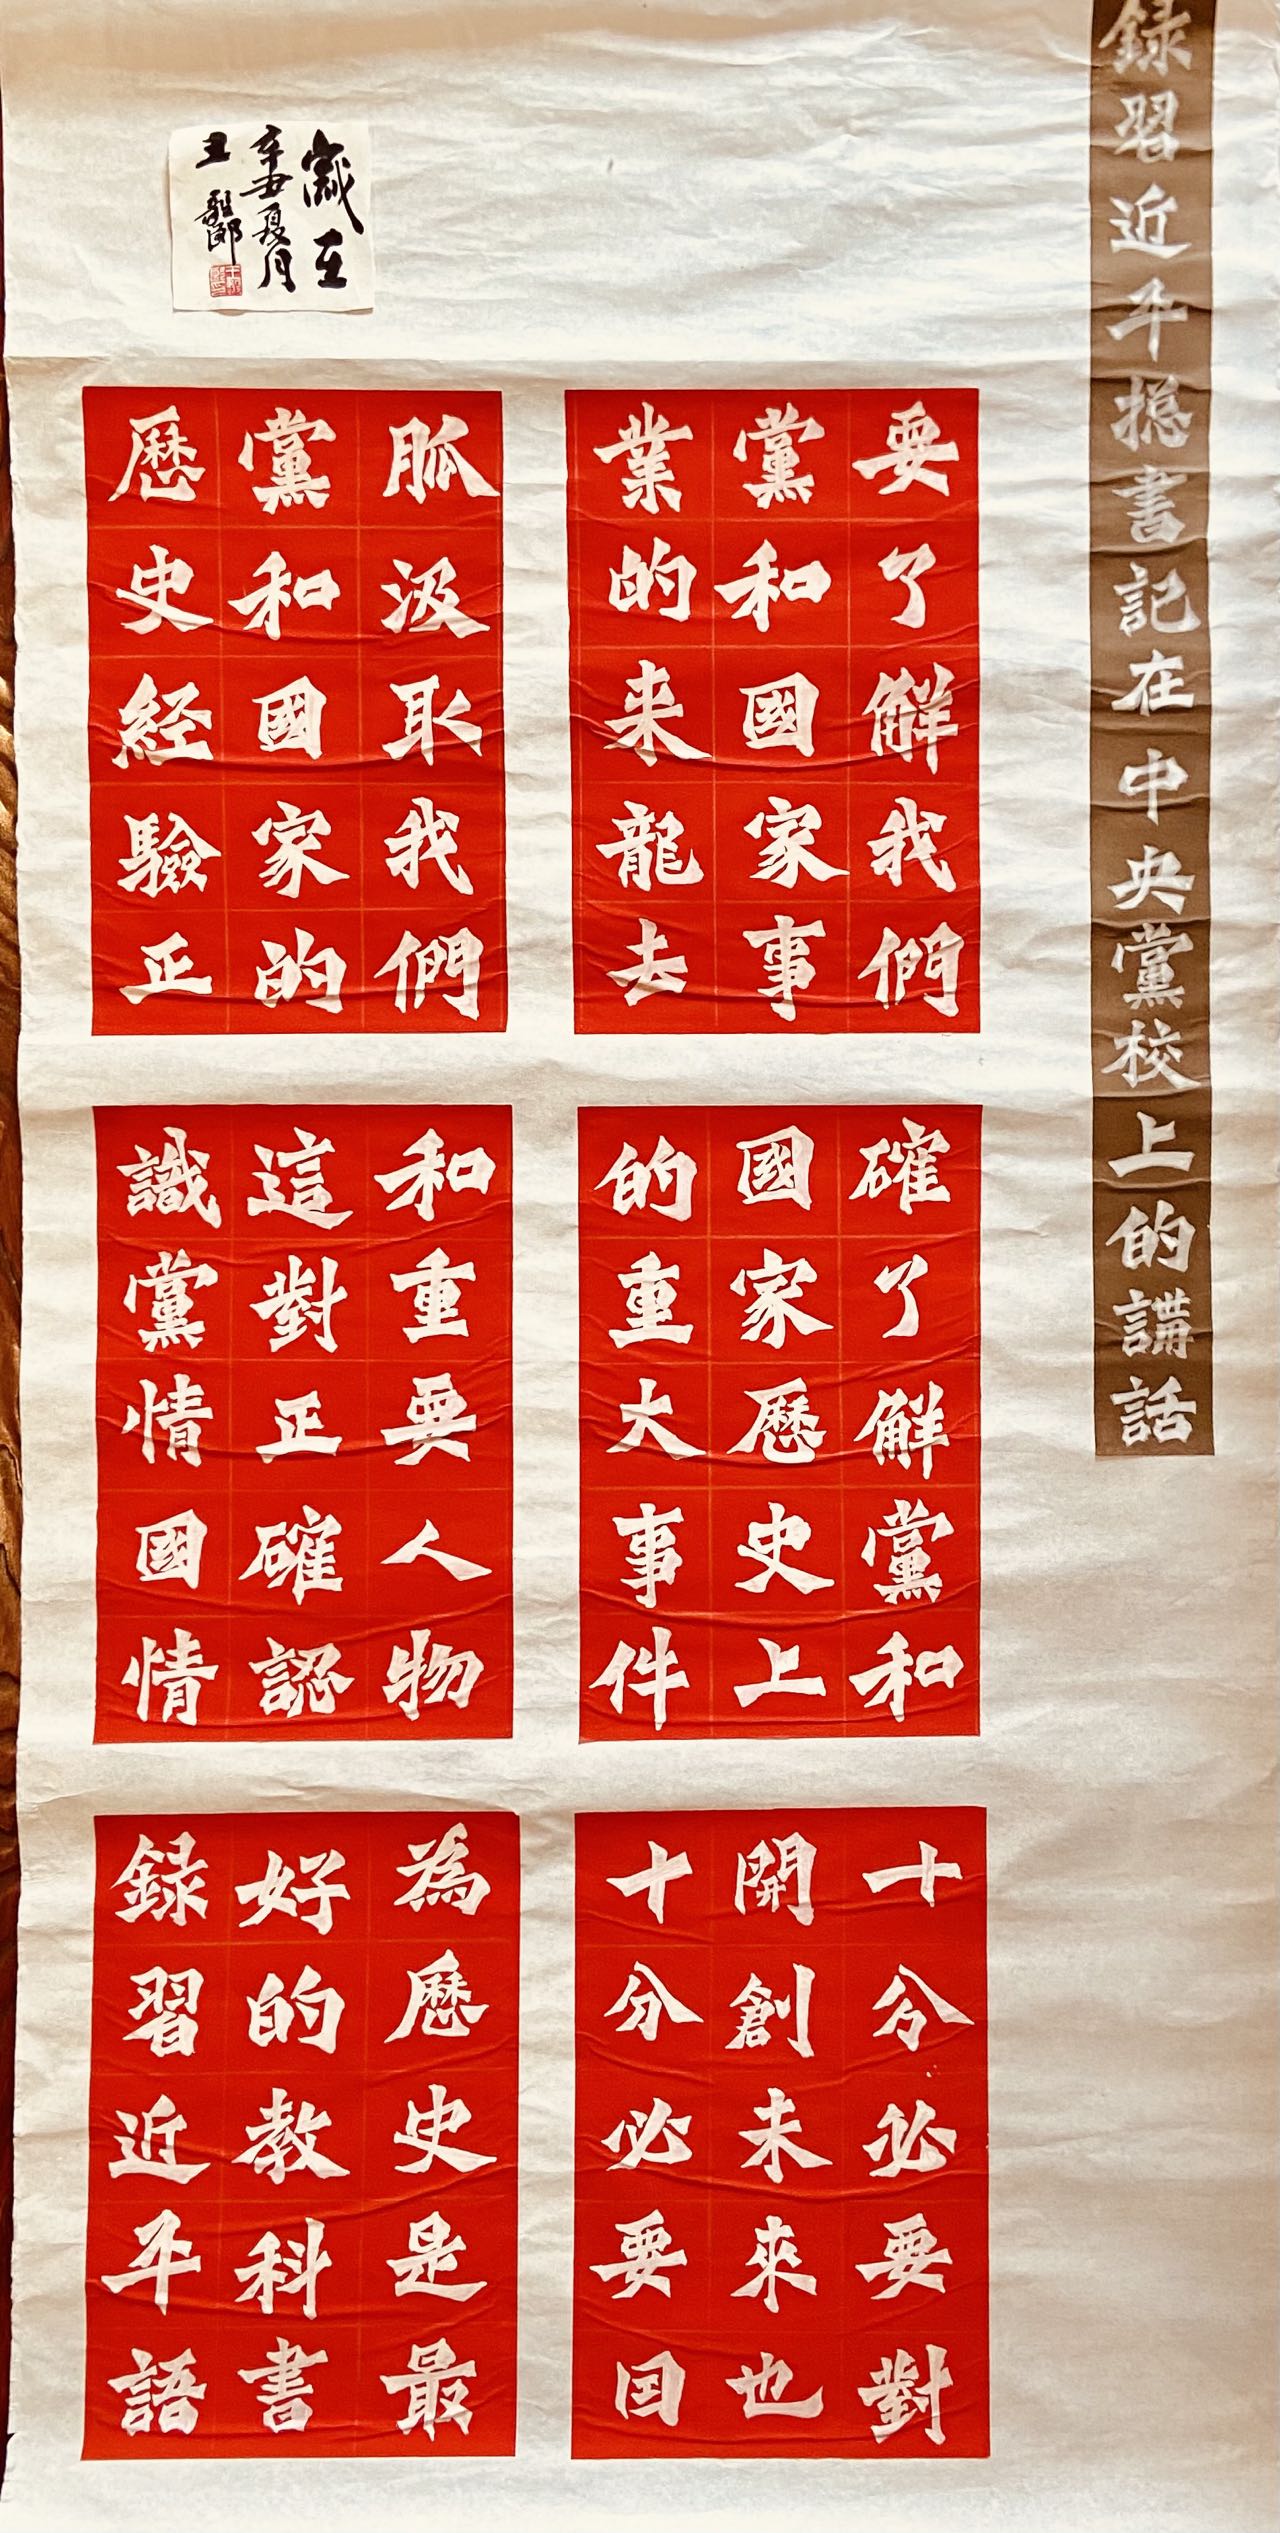 録習近平揔書記在中央黨校上的講話
要了解我們
黨和國家事
業的来龍去
脈汲取我們
黨和國家的
歷史經驗正
確了解黨和
國家歷史上
的重大事件
和重要人物
這對正確認
識黨情國情
十分必要對
開創未來也
十分必要因
為歷史是最
好的教科書
録習近平語
歲在
辛丑夏月
王